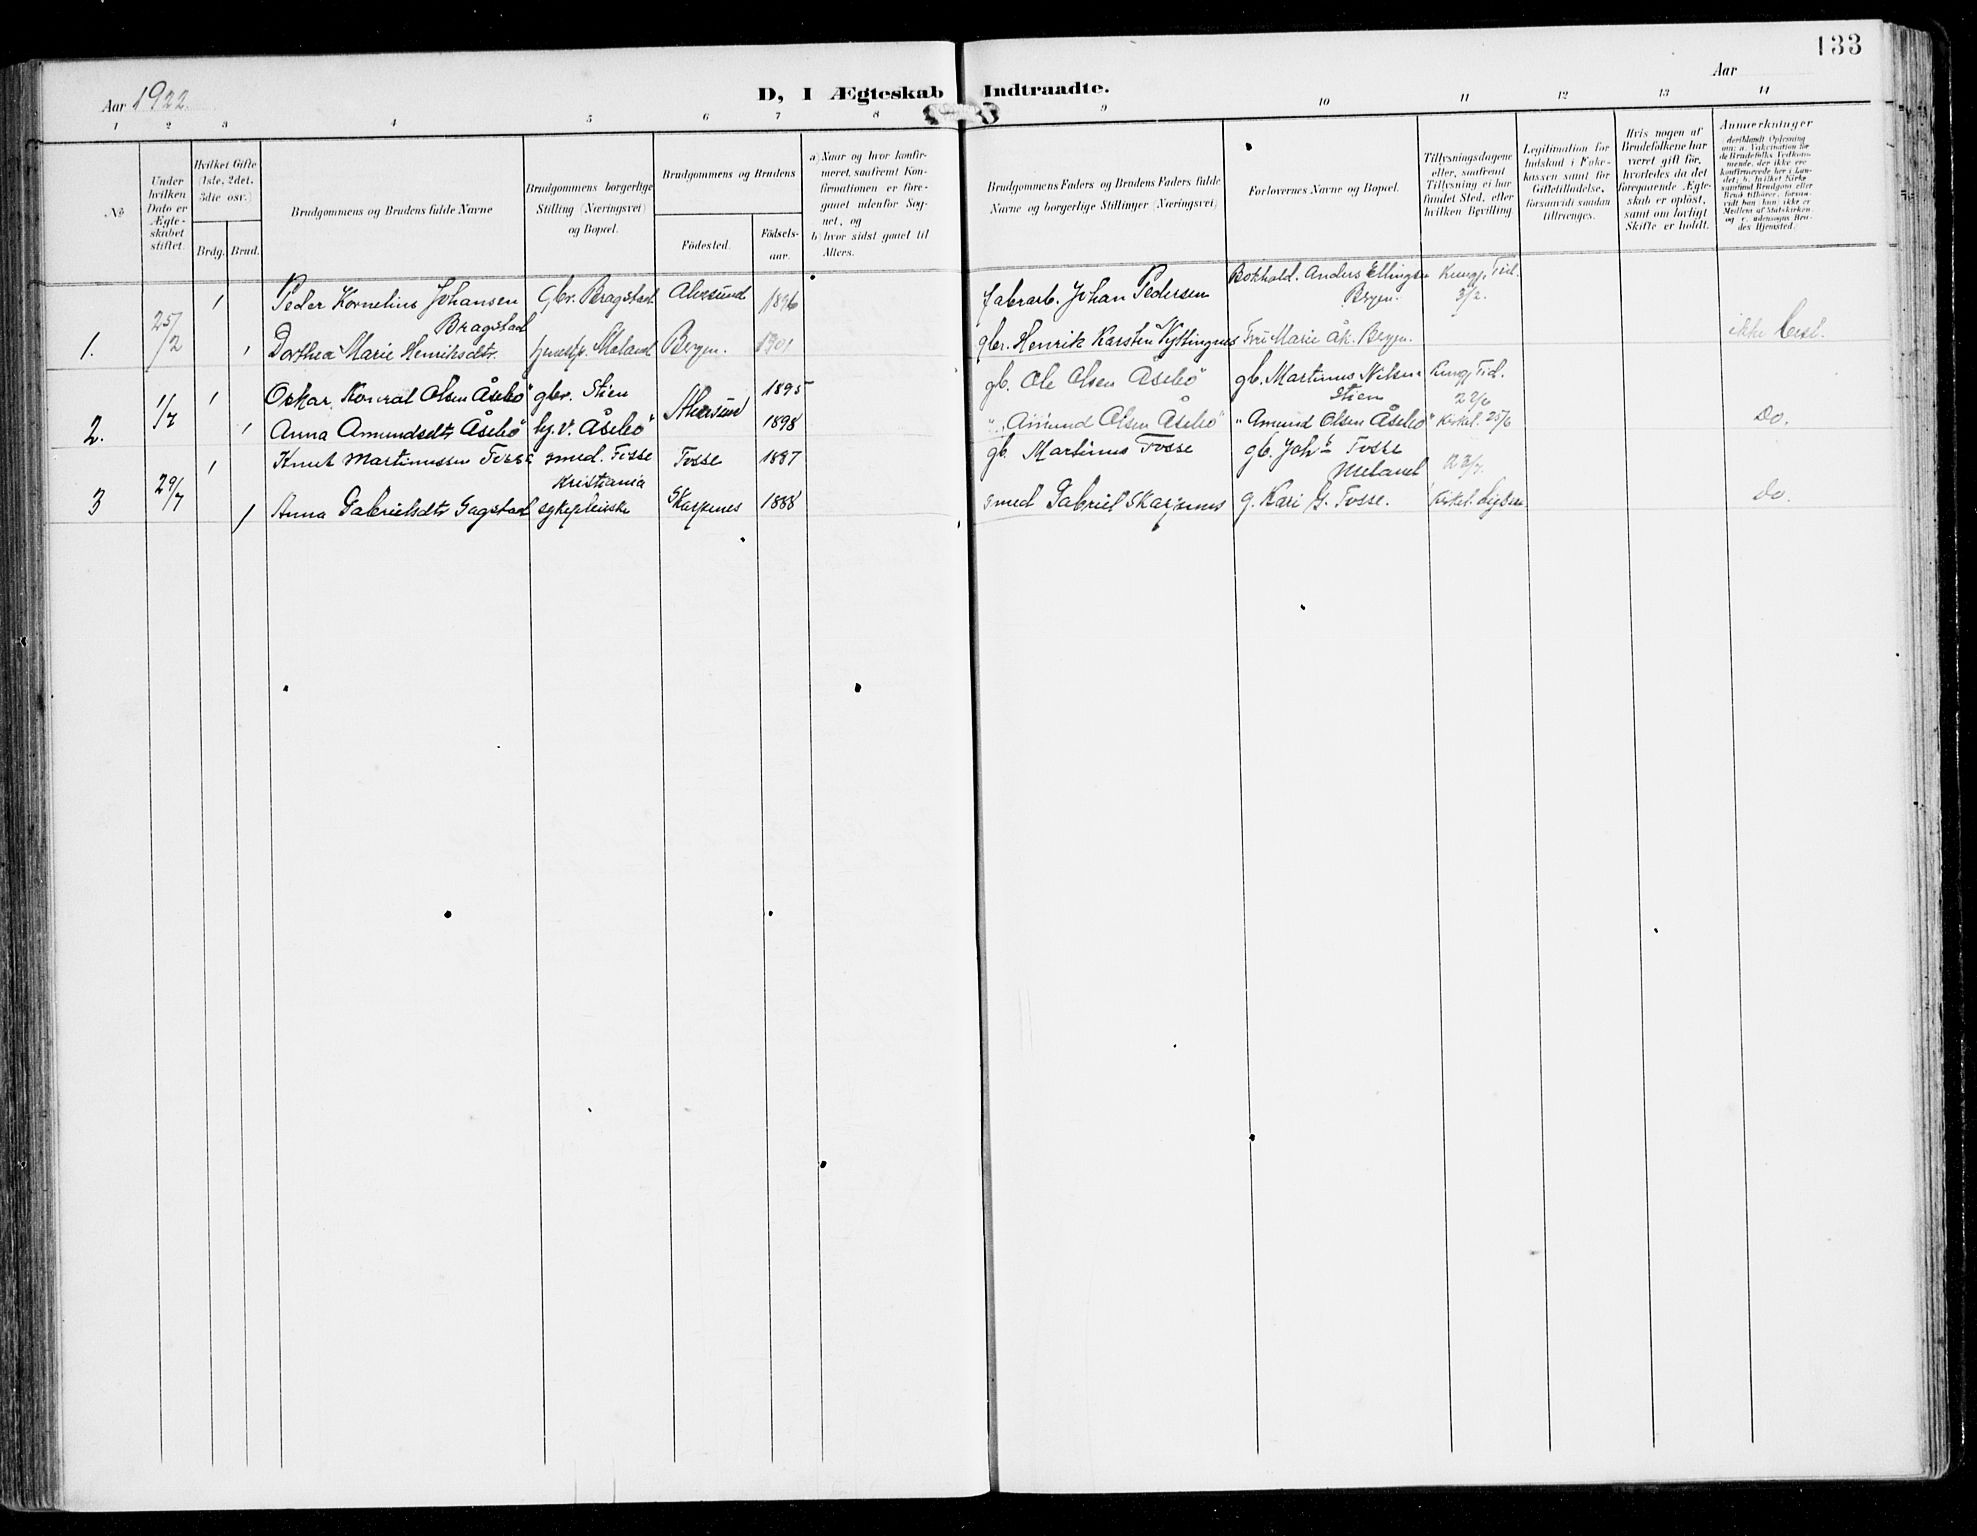 133
Aar 1922.
D, I Ægteskab Indtraadte.
Aar
1 2 3 4 5 6 7 8 9 10 11 12 13 14
№
Under hvilken Dato er Ægteskabet stiftet.
Hvilket Gifte (1ste, 2det, 3die osv.)
Brdg. Brud.
Brudgommens og Brudens fulde Navne
Brudgommens borgerlige Stilling (Næringsvei) og Bopæl.
Brudgommens og Brudens
Födested.
Födselsaar.
a) Naar og hvor konfirmeret, saafremt Konfirmationen er foregaaet udenfor Sognet, og
b) hvor sidst gaaet til Alters.
Brudgommens Faders og Brudens Faders fulde Navne og borgerlige Stillinger (Næringsvei)
Forlovernes Navne og Bopæl.
Tillysningsdagene eller, saafremt Tillysning ei har fundet Sted, efter hvilken Bevilling.
Legitimation for Indskud i Enkekassen samt for Giftetilladelse, forsaavidt saadan tiltrænges.
Hvis nogen af Brudefolkene har været gift för, hvorledes da det foregaaende Ægteskab er oplöst, samt om lovligt Skifte er holdt.
Anmærkninger
1. 25/2 1 Peder Kornelius Johansen Bragstad gbr. Bragstad Alversund 1896 fabrarb. Johan Pedersen Bokhold. Anders Ellingsen Bergen. Kungj. Tid. 3/2.
1 Dorthea Marie Henriksdtr. Bergen. 1901 gbr. Henrik Karsten Fru Marie Bergen. ikke besl.
2. 1/7 1 Oskar Konrad Olsen Åsebö gbr. Stien Alversund 1895 gb. Ole Olsen Åsebö gb. Martinus Nilsen Stien Kungj. Tid. 22/6
1 Anna Amundsdtr Åsebö Åsebö 1898 " Amund Olsen Åsebö " Amund Olsen Åsebö Kirkel. 25/6 Do.
3 29/7 1 Knut Martinussen Fosse smed. Fosse Kristiania Fosse 1887 gb. Martinus Fosse gb. Joh Fosse Meland
1 Anna Gabrielsdtr Gagstad sykepleierske 1888 smed Gabriel g. Kari G. Fosse. Kirkel. Do.